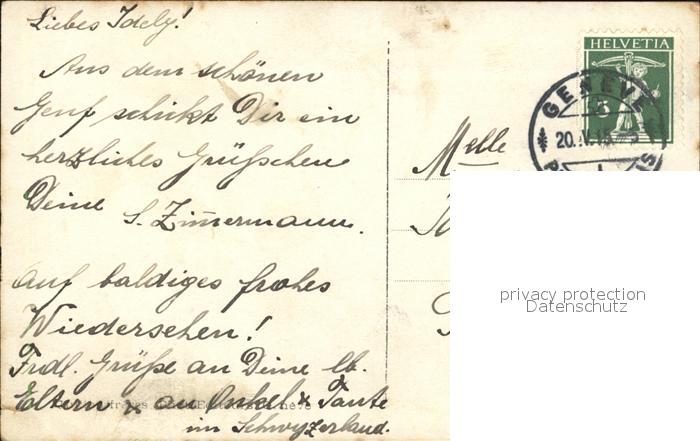 Liebes Idely!
Aus dem schönen
Genf schickt Dir ein
herzliches Grüßchen
Deine S. Zimmermann.
Auf baldiges frohes
Wiedersehen!
Frdl. Grüße an Deine lb.
Eltern & an Onkel & Tante
im Schwyzerland.
HELVETIA
5
GENEVE
20.V.
Melle
privacy protection
Datenschutz